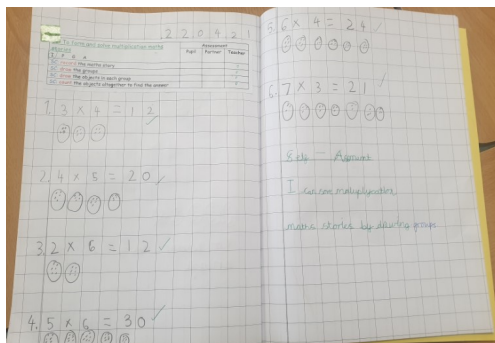 2 2 0 4 2 1
To form and solve multiplication maths
stories
Assessment
Pupil Partner Teacher
the maths story
draw the groups
draw the objects in each group
count the objects altogether to find the answer
1. 3 × 4 = 12
2. 4 × 5 = 20
3. 2 × 6 = 12
4. 5 × 6 = 30
5. 6 × 4 = 24
6. 7 × 3 = 21
Self - Assessment
I can solve multiplication
maths stories by drawing groups